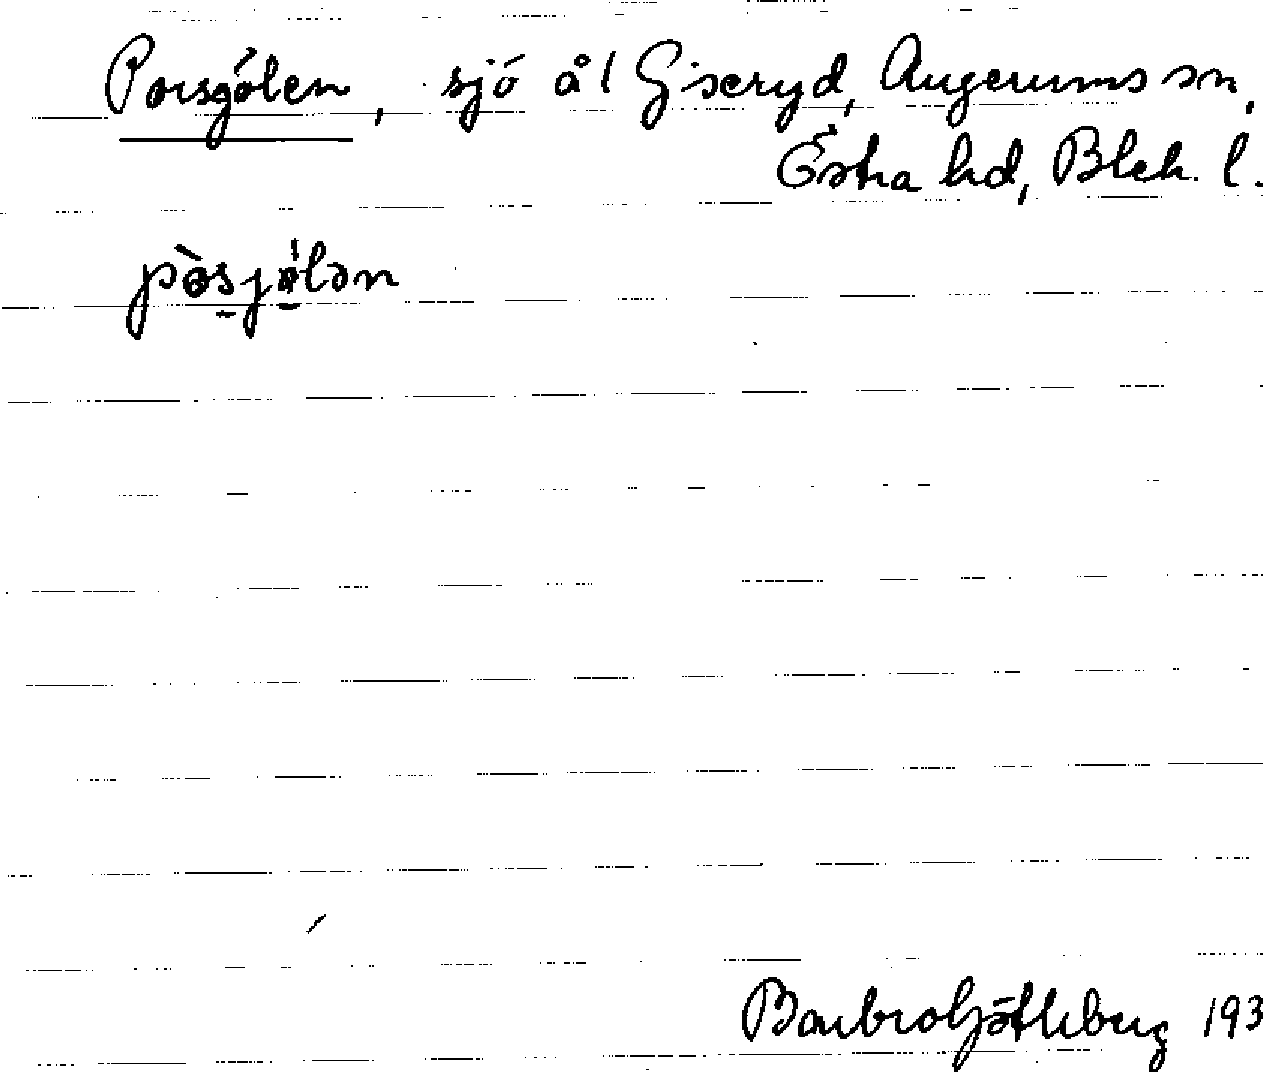 Porsgölen, sjö å 1 Giseryd, Augerums sn,
Östra hd, Blek. l.
Barbro Götheberg 193